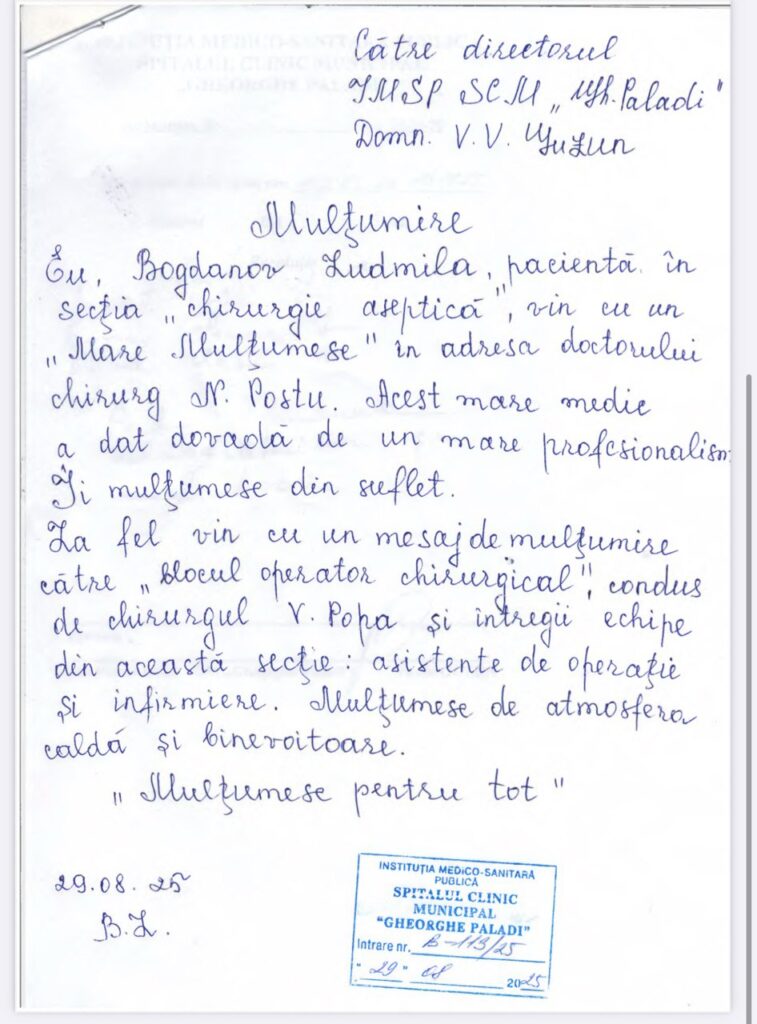 Către directorul
IMSP SCM „Gh. Paladi"
Domn. V. V. Guzun
Mulțumire
Eu, Bogdanov Ludmila, pacientă în
secția „chirurgie aseptică", vin cu un
„Mare Mulțumesc" în adresa doctorului
chirurg N. Postu. Acest mare medic
a dat dovadă de un mare profesionalism.
Îi mulțumesc din suflet.
La fel vin cu un mesaj de mulțumire
către „Blocul operator chirurgical", condus
de chirurgul V. Popa și întregii echipe
din această secție: asistente de operație
și infirmiere. Mulțumesc de atmosfera
caldă și binevoitoare.
„Mulțumesc pentru tot"
29.08.25
B.L.
INSTITUȚIA MEDICO-SANITARĂ
PUBLICĂ
SPITALUL CLINIC
MUNICIPAL
"GHEORGHE PALADI"
Intrare nr. B-113/25
"29" 08 2025